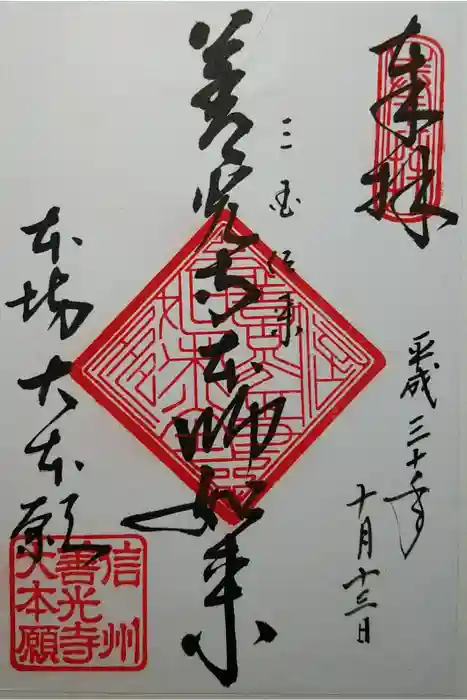 奉拝
平成三十年
十月十三日
三国伝来
善光寺本師如来
本坊大本願
信州
善光寺
大本願